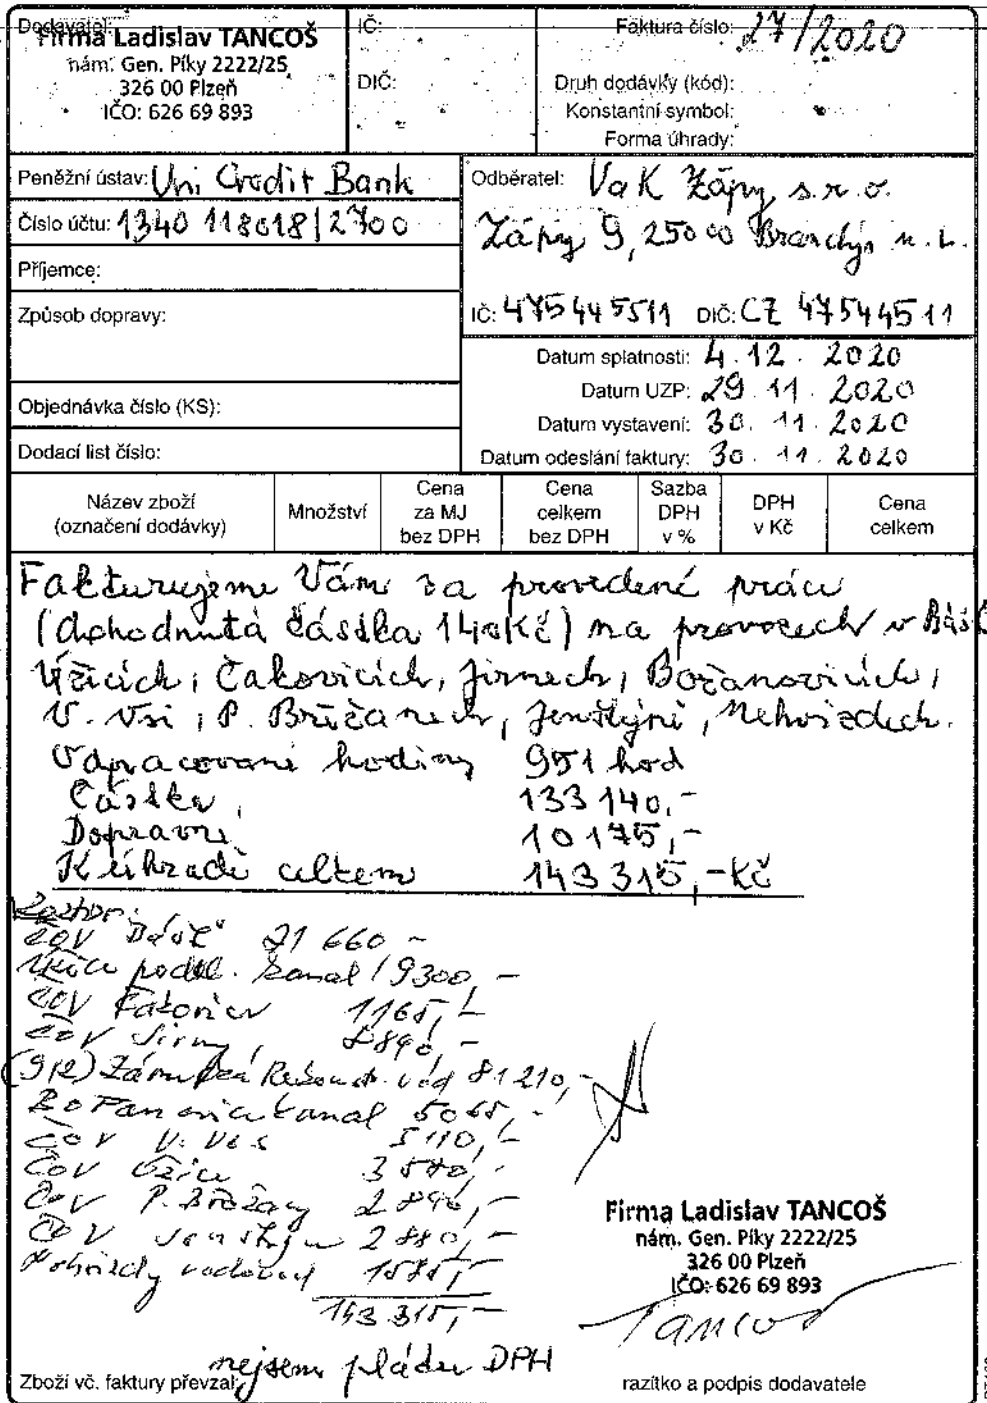 Dodavatel:
Firma Ladislav TANCOŠ
nám. Gen. Píky 2222/25
326 00 Plzeň
IČO: 626 69 893
IČ:
DIČ:
Faktura číslo: 27/2020
Druh dodávky (kód):
Konstantní symbol:
Forma úhrady:
Peněžní ústav: Uni Credit Bank
Číslo účtu: 1340 118018/2700
Příjemce:
Způsob dopravy:
Objednávka číslo (KS):
Dodací list číslo:
Odběratel: VaK Zápy s.r.o.
Zápy 9, 250 00 Brandýs n. L.
IČ: 475445511 DIČ: CZ 47544511
Datum splatnosti: 4.12. 2020
Datum UZP: 29.11.2020
Datum vystavení: 30. 11. 2020
Datum odeslání faktury: 30. 11. 2020
Název zboží (označení dodávky)
Množství
Cena za MJ bez DPH
Cena celkem bez DPH
Sazba DPH v %
DPH v Kč
Cena celkem
Fakturujeme Vám za provedené práce
(dohodnutá částka 140Kč) na provozech v
Úžicích, Čakovicích, Jirnech, Bořanovicích,
V. Vsi, P. Břežanech, Jenštýně, Nehvizdech.
Odpracované hodiny 951 hod
Částka 133 140,-
Dopravné 10 175,-
K úhradě celkem 143 315,-Kč
ČOV 21 660 -
kanal 19300,-
ČOV 1165,-
ČOV Jirny
(912) 81 210,-
kanal 5065,-
ČOV V. Ves 5110,-
ČOV Úžice
ČOV P. Břežany
ČOV
Nehvizdy vodovod
143 315,-
nejsem plátce DPH
Zboží vč. faktury převzal:
Firma Ladislav TANCOŠ
nám. Gen. Píky 2222/25
326 00 Plzeň
IČO: 626 69 893
Tancoš
razítko a podpis dodavatele